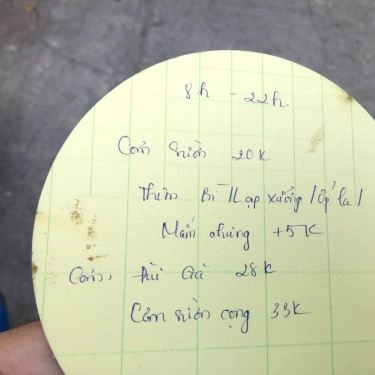 8h - 22h
Cơm sườn 20K
Thêm Bì / Lạp xưởng / Ốp la /
Mắm chưng +5K
Cơm, Đùi Gà 28K
Cơm sườn cọng 33K